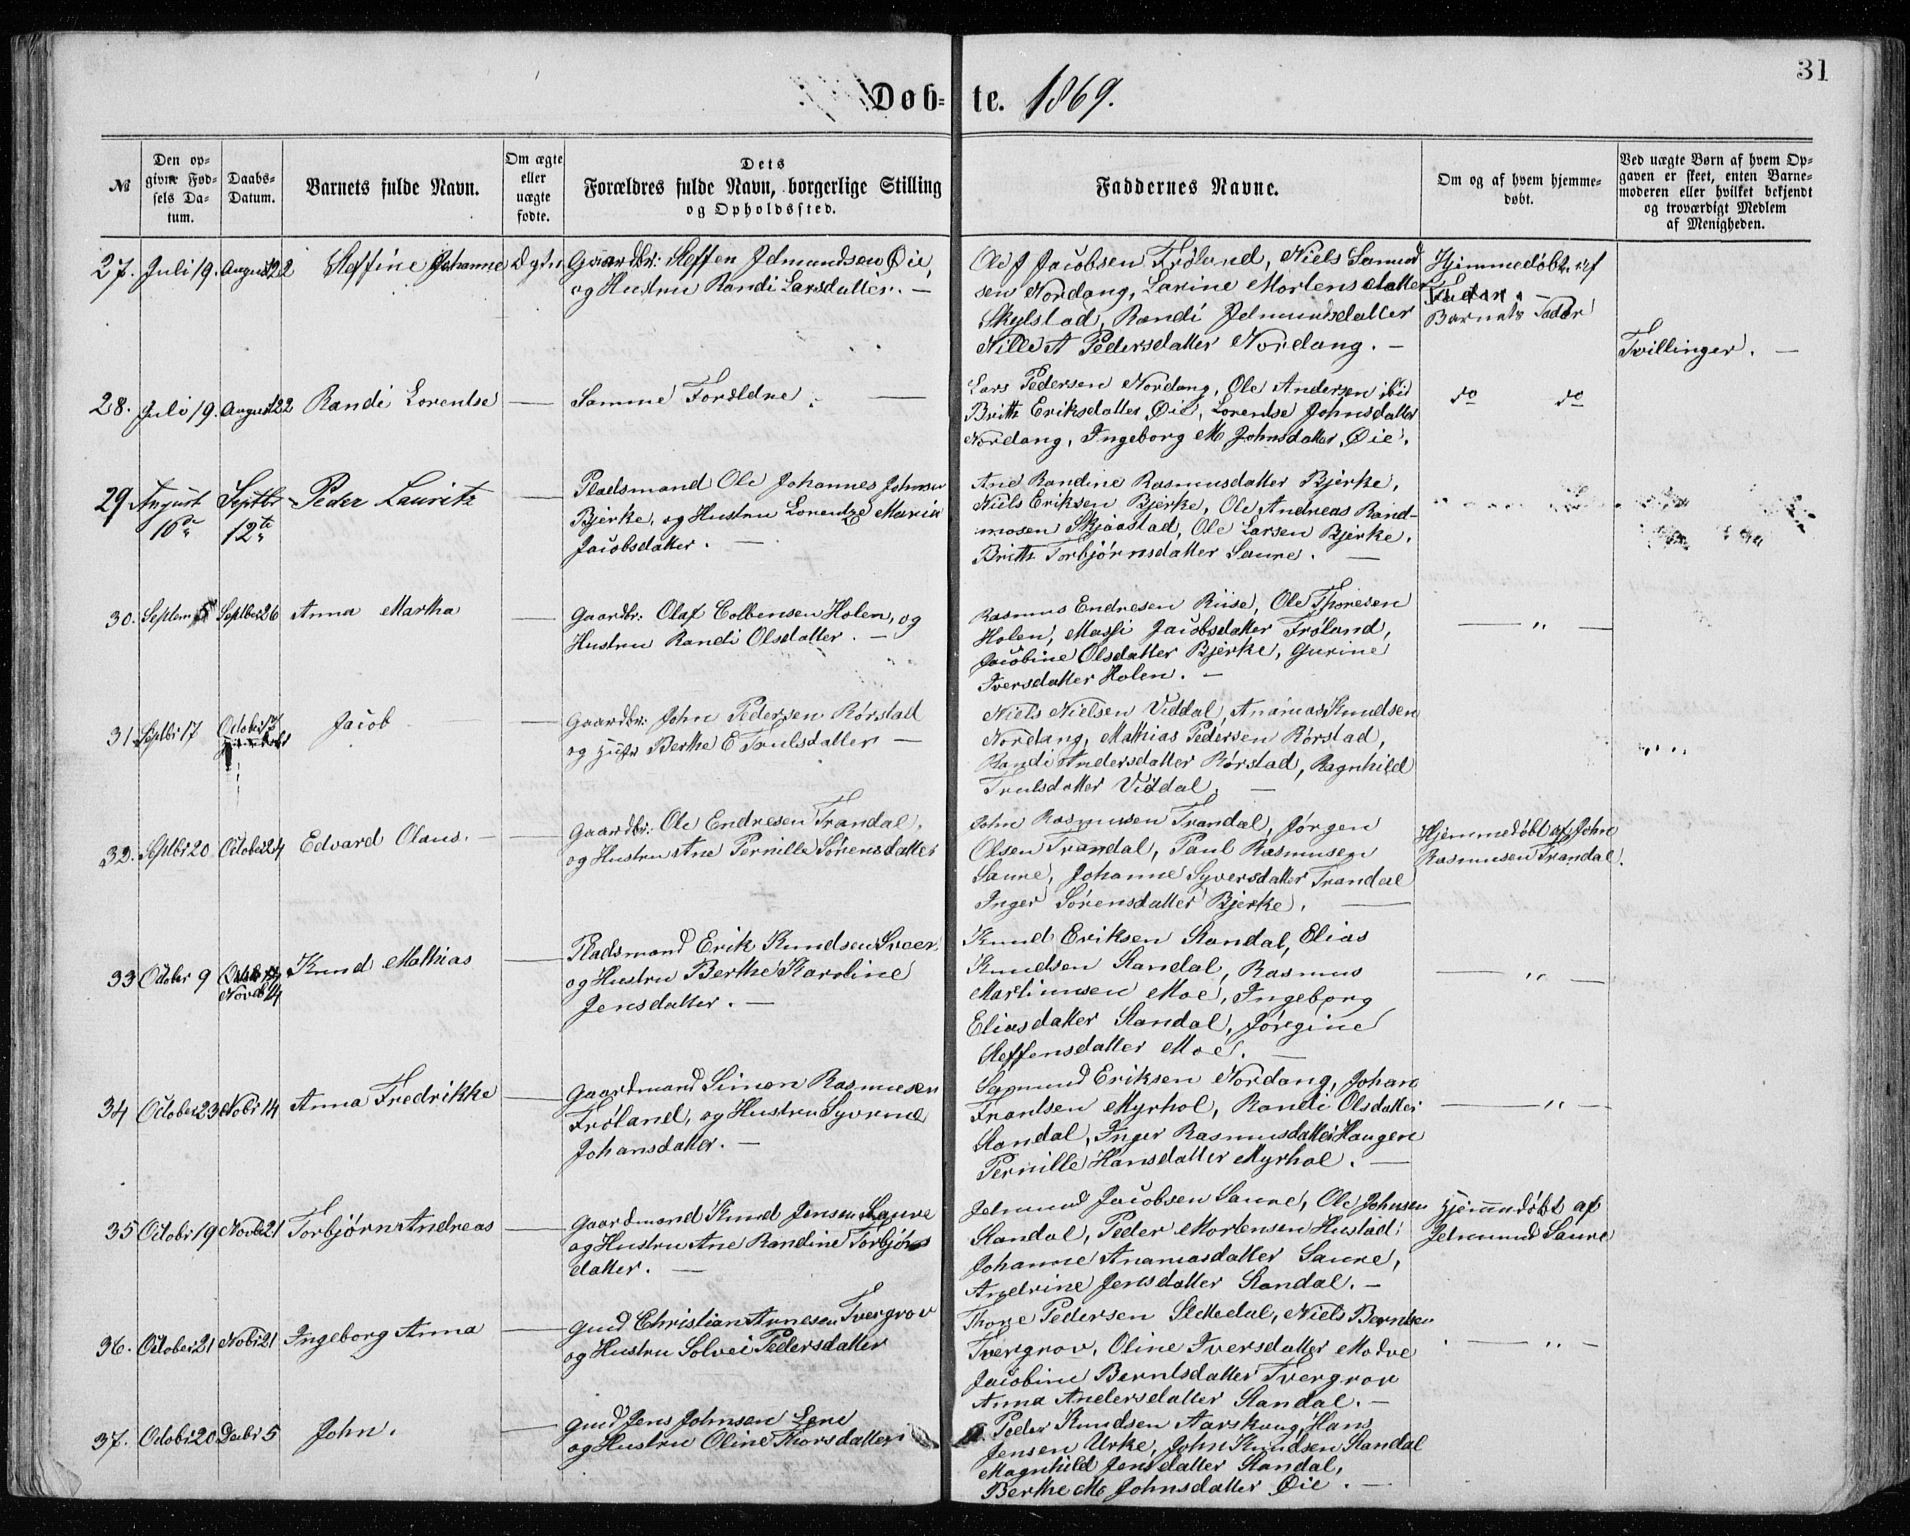 31
Døb- te. 1869.
№
Den op-
givne Fød-
sels Da-
tum.
Daabs-
Datum.
Barnets fulde Navn.
Om ægte
eller
uægte
fødte.
Dets
Forældres fulde Navn, borgerlige Stilling
og Opholdssted.
Faddernes Navne.
Om og af hvem hjemme-
døbt.
Ved uægte Børn af hvem Op-
gaven er skeet, enten Barne-
moderen eller hvilket bekjendt
og troværdigt Medlem
af Menigheden.
27. Juli 19. August 22 Steffine Johanne Ægte Gaardbr: Steffen Jdmundsen Øie,
og Hustru Randi Larsdatter. —
Ole J Jacobsen Frøland, Niels Samund
sen Nordang, Larine Mortensdatter
Skylstad, Randi Jdmundsdatter
Nille A Pedersdatter Nordang. —
Hjemmedøbt af
Barnets Fader
Tvillinger. —
28. Juli 19. August 22 Randi Lorentse — Samme Forældre. —
Lars Pedersen Nordang, Ole Andersen ibid
Britte Eriksdatter Øie, Lorentse Johnsdatter
Nordang, Ingeborg M Johnsdatter Øie.
do do
29 August Septbr Peder Lauritz — Pladsmand Ole Johannes Johnsen
16de 12te Bjerke, og Hustru Lorentze Maria
Jacobsdatter. —
Ane Randine Rasmusdatter Bjerke,
Niels Eriksen Bjerke, Ole Andreas Rand-
mosen Skjaastad, Ole Larsen Bjerke.
Britte Torbjørnsdatter Saure. —
30. Septem 5 Septbr 26 Anna Martha — Gaardbr: Olaf Colbensen Holen, og
Hustru Randi Olsdatter. —
Rasmus Endresen Riise, Ole Thoresen
Holen, Massi Jacobsdatter Frøland,
Jacobine Olsdatter Bjerke, Gurine
Iversdatter Holen. —
— " —
31 Septbr 17 October Jacob — Gaardbr: John Pedersen Rørstad
og Hustr Berthe E Trulsdatter —
Niels Nielsen Viddal, Ananias Knudsen
Nordang, Mathias Pedersen Rørstad,
Randi Andersdatter Rørstad, Ragnhild
Trulsdatter Viddal. —
32. Septbr 20 October 24 Edvard Olaus. — Gaardbr: Ole Endresen Trandal,
og Hustru Ane Pernille Sørensdatter
John Rasmusen Trandal, Jørgen
Olsen Trandal, Paul Rasmusen
Saure, Johanne Syversdatter Trandal
Inger Sørensdatter Bjerke. —
Hjemmedøbt af John
Rasmusen Trandal.
33 October 9 Novbr 14 Knud Mathias — Pladsmand Erik Knudsen
og Hustru Berthe Karoline
Jensdatter. —
Knud Eriksen Standal, Elias
Knudsen Standal, Rasmus
Martinusen Moe, Ingeborg
Eliasdatter Standal, Jørgine
Steffensdatter Moe. —
— " —
34 October 23 Nobr 14 Anna Fredrikke — Gaardmand Simon Rasmusen
Frøland, og Hustru Syverine
Johansdatter. —
Samund Eriksen Nordang, Johan
Frantsen Myrhol, Randi Olsdatter
Standal, Inger Rasmusdatter Haugen
Pernille Hansdatter Myrhol. —
— " —
35 Octobr 19 Novbr 21 Torbjørn Andreas — Gaardmand Knud Jensen Saure
og Hustru Ane Randine Torbjørns
datter. —
Jdmund Jacobsen Saure, Ole Johnsen
Standal, Peder Mortensen Hustad,
Johanne Ananiasdatter Saure,
Andrine Jensdatter Standal. —
Hjemmedøbt af
Jdmund Saure
36. October 21 Nobr 21 Ingeborg Anna — Gmd Christian Arnesen Tvergrov
og Hustru Solvei Pedersdatter
Thore Pedersen Slettedal, Niels Berntsen
Tvergrov, Oline Iversdatter Modve
Jacobine Berntsdatter Tvergrov
Anna Andersdatter Standal. —
— " —
37. Octobr 20 Decbr 5 John. — Gmd Jens Johnsen Lene
og Hustru Oline Thorsdatter
Peder Knudsen Aarskoug, Hans
Jensen Urke, John Knudsen Standal
Magnhild Jensdatter Standal,
Berthe M Johnsdatter Øie. —